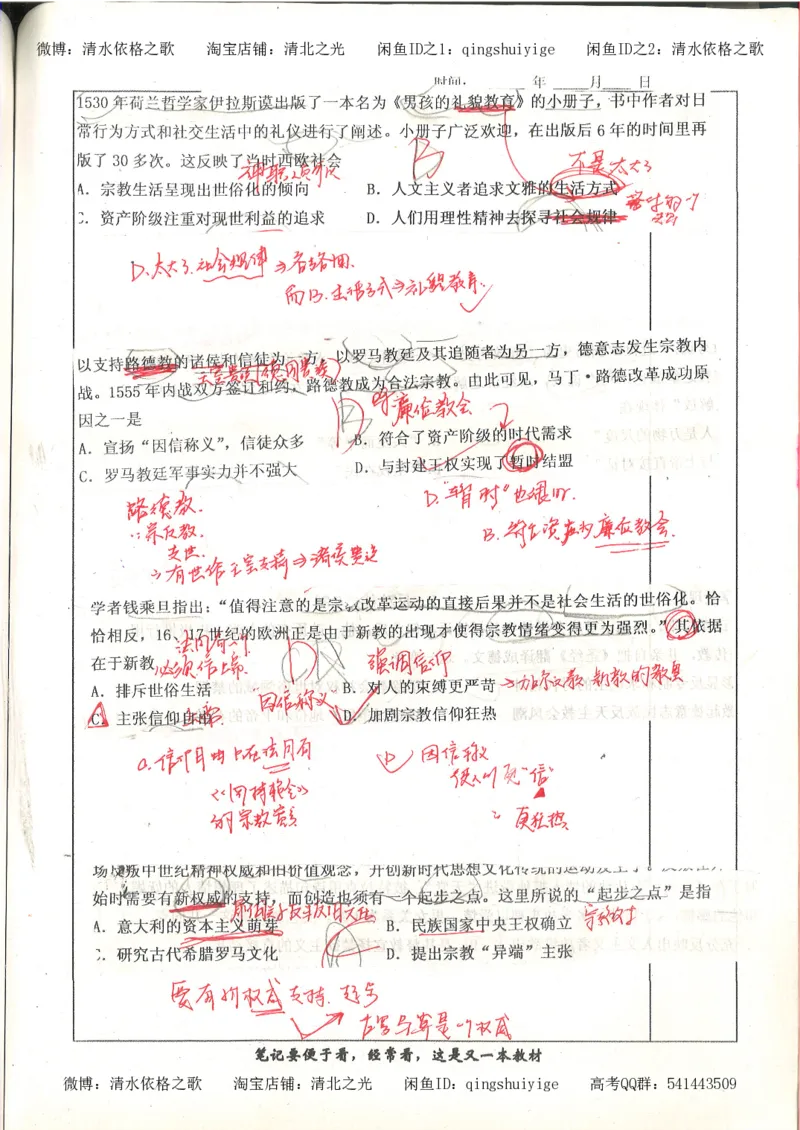 微博：清水依格之歌 淘宝店铺：清北之光 闲鱼ID之1：qingshuiyige 闲鱼ID之2：清水依格之歌
时间： 年 月 日
1530年荷兰哲学家伊拉斯谟出版了一本名为《男孩的礼貌教育》的小册子，书中作者对日
常行为方式和社交生活中的礼仪进行了阐述。小册子广泛欢迎，在出版后6年的时间里再
版了30多次。这反映了当时西欧社会
B
不是太大了
A．宗教生活呈现出世俗化的倾向 B．人文主义者追求文雅的生活方式
C．资产阶级注重对现世利益的追求 D．人们用理性精神去探寻社会规律
D.太大了.社会规律
而B.生活方式→礼貌教育
以支持路德教的诸侯和信徒为一方，以罗马教廷及其追随者为另一方，德意志发生宗教内
战。1555年内战双方签订和约，路德教成为合法宗教。由此可见，马丁·路德改革成功原
因之一是
廉俭教会
A．宣扬“因信称义”，信徒众多 B．符合了资产阶级的时代需求
C．罗马教廷军事实力并不强大 D．与封建王权实现了暂时结盟
路德教.
D."暂时"也很对.
B.符合资产的廉俭教会.
学者钱乘旦指出：“值得注意的是宗教改革运动的直接后果并不是社会生活的世俗化。恰
恰相反，16、17世纪的欧洲正是由于新教的出现才使得宗教情绪变得更为强烈。”其依据
在于新教
必须信上帝
强调信仰
A．排斥世俗生活 B．对人的束缚更严苛
因信称义
C．主张信仰自由 D．加剧宗教信仰狂热
D 因信称义
更狂热
场反叛中世纪精神权威和旧价值观念，开创新时代思想文化传统的运动发生了。
始时需要有新权威的支持，而创造也须有一个起步之点。这里所说的“起步之点”是指
A．意大利的资本主义萌芽 B．民族国家中央王权确立
C．研究古代希腊罗马文化 D．提出宗教“异端”主张
要有新权威支持.起步
笔记要便于看，经常看，这是又一本教材
微博：清水依格之歌 淘宝店铺：清北之光 闲鱼ID：qingshuiyige 高考QQ群：541443509